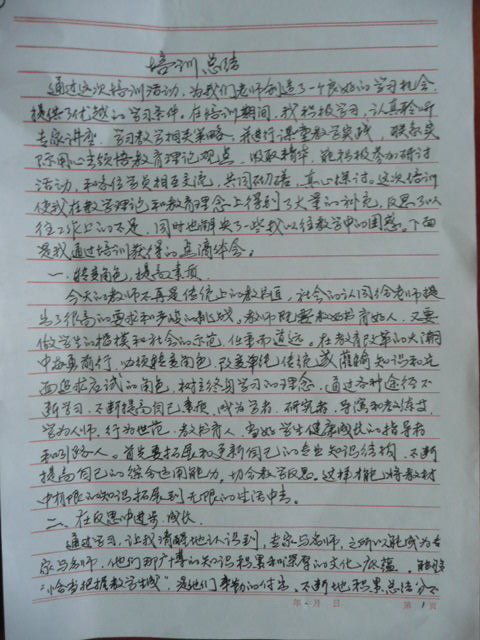 培训总结
通过这次培训活动，为我们老师创造了一个良好的学习机会，
提供了优越的学习条件。在培训期间，我积极学习，认真聆听
专家讲座，学习教学相关策略，并进行课堂教学实践，联系实
际用心去领悟教育理论观点，吸取精华，能积极参加研讨
活动，和各位学员相互交流，共同切磋，真心探讨，这次培训
使我在教学理论和教育理念上得到了大量的补充，反思了以
往工作上的不足，同时也解决了一些我以往教学中的困惑。下面
是我通过培训获得的点滴体会。
一、转变角色，提高素质
今天的教师不再是传统上的教书匠，社会的认同给老师提
出了很高的要求和多元的挑战。教师既要教好书育好人，又要
做学生的楷模和社会的示范，任重而道远。在教育改革的大潮
中奋勇前行，必须转变角色，改变单纯传统灌输知识和片
面追求应试的角色，树立终身学习的理念，通过各种途径不
断学习，不断提高自己素质，成为学者、研究者、导演和教练员，
学为人师，行为世范，教书育人，当好学生健康成长的指导者
和引路人。首先要拓展和更新自己的专业知识结构，不断
提高自己的综合运用能力，切合教学反思。这样才能将教材
中有限的知识拓展到无限的生活中去。
二、在反思中进步、成长
通过学习，让我清晰地认识到，专家与名师，之所以能成为专
家与名师，他们那广博的知识积累和深厚的文化底蕴，
“恰当把握教学生成”是他们辛勤的付出，不断地积累总结
年 月 日 第 1 页